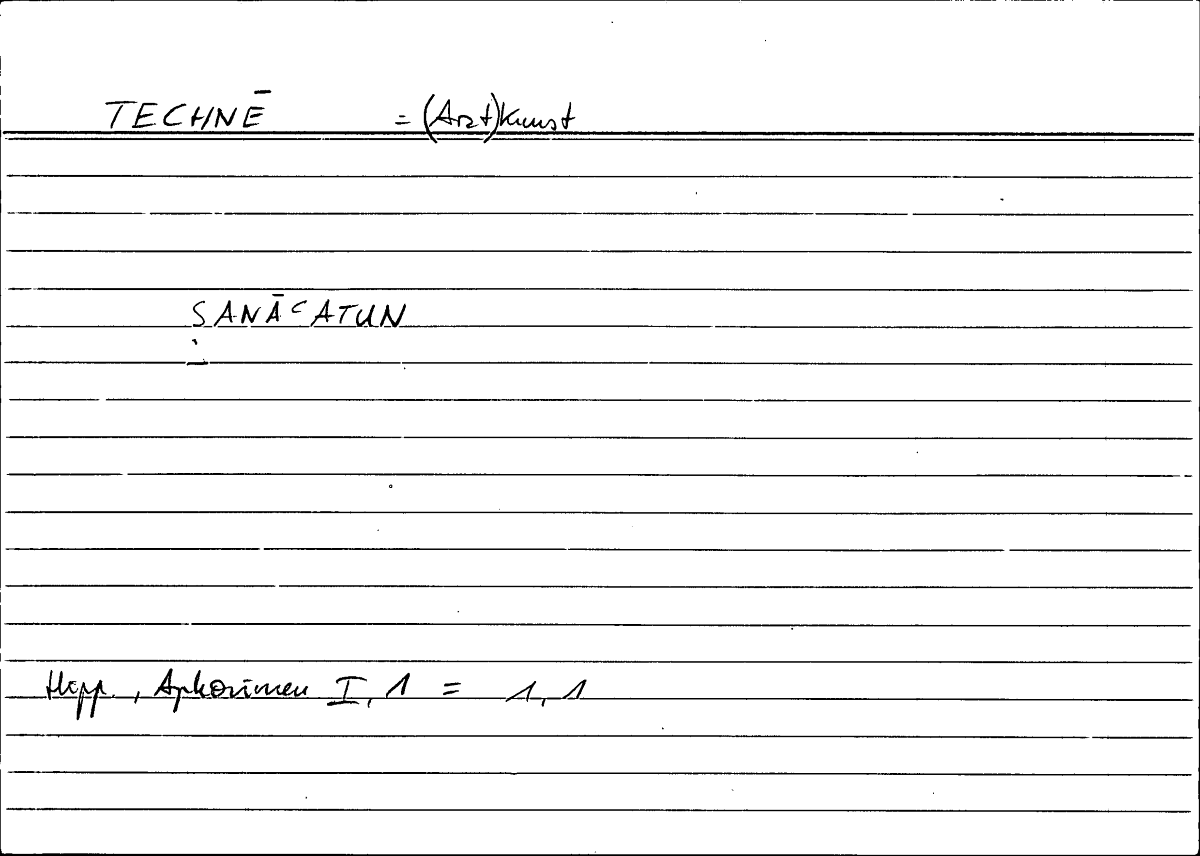 TECHNĒ = (Arzt)kunst
SANĀʿATUN
Hipp., Aphorismen I, 1 = 1, 1